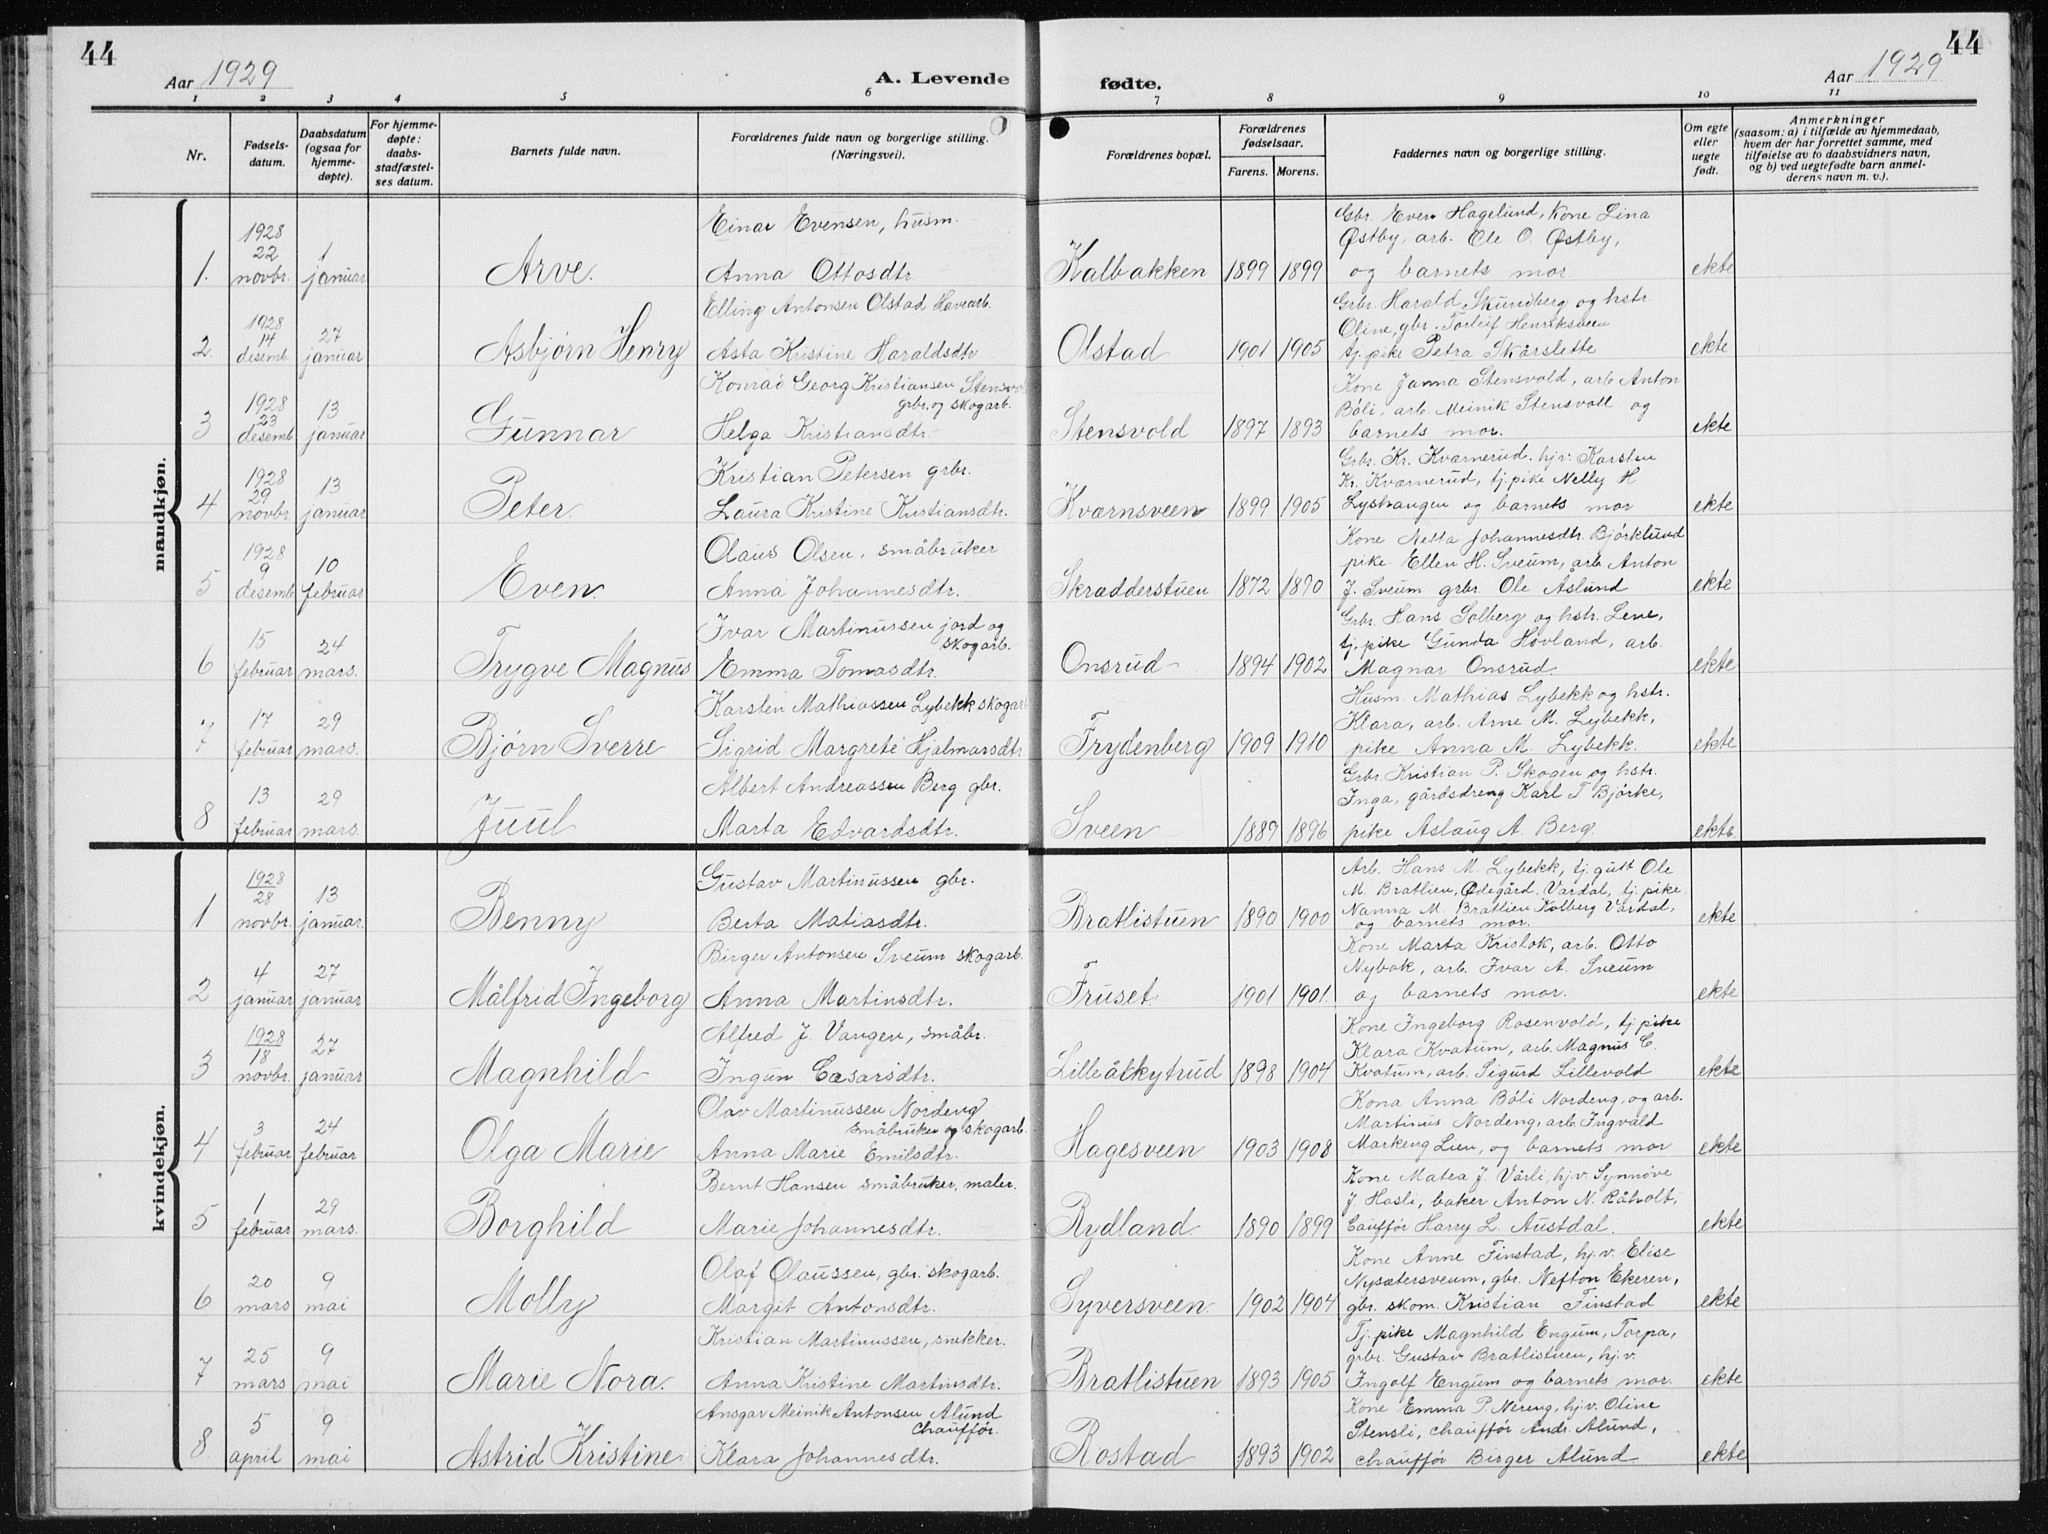 44
Aar 1929
A. Levende
1 2 3 4 5 6
Nr.
Fødsels-
datum.
Daabsdatum
(ogsaa for
hjemme-
døpte).
For hjemme-
døpte:
daabs-
stadfæstel-
ses datum.
Barnets fulde navn.
Forældrenes fulde navn og borgerlige stilling.
(Næringsvei).
44
Aar 1929
fødte.
7 8 9 10 11
Forældrenes bopæl.
Forældrenes
fødselsaar.
Farens. Morens.
Faddernes navn og borgerlige stilling.
Om egte
eller
uegte
født.
Anmerkninger
(saasom: a) i tilfælde av hjemmedaab,
hvem der har forrettet samme, med
tilføielse av to daabsvidners navn,
og b) ved uegtefødte barn anmel-
derens navn m. v.).
mandkjøn.
1. 1928 22 novbr. 1 januar Arve.
Einar Evensen, husm.
Anna Ottosdtr.
Kalbakken 1899 1899
Gbr. Even Hagelund, Kone Lina
Østby, arb. Ole O. Østby,
og barnets mor
ekte
2. 1928 14 desemb. 27 januar Asbjørn Henry
Elling Antonsen Olstad Havearb.
Asta Kristine Haraldsdtr
Olstad 1901 1905
Grbr. Harald Skundberg og hstr.
Oline, gbr. Torleif Henriksveen
tj. pike Petra Skårslette
ekte
3 1928 23 desemb 13 januar Gunnar
Konrad Georg Kristiansen Stensvo
grbr. og skogarb.
Helga Kristiansdtr.
Stensvold 1897 1893
Kone Janna Stensvold, arb. Anton
Bøli, arb. Meinik Stensvoll og
barnets mor.
ekte
4 1928 29 novbr. 13 januar Peter.
Kristian Petersen grbr.
Laura Kristine Kristiansdtr.
Kværnsveen 1899 1905
Grbr. Kr. Kværnerud. hj.v. Karsten
Kr. Kværnerud, tj. pike Nelly H
Lyshaugen og barnets mor
ekte
5 1928 9 desemb 10 februar Even.
Olaus Olsen, småbruker
Anna Johannesdtr.
Skrædderstuen 1872 1890
Kone Netta Johannesdtr. Bjørklund
pike Ellen H. Sveum, arb Anton
J. Sveum grbr. Ole Åslund
ekte
6 15 februar 24 mars. Trygve Magnus
Ivar Martinussen jord og
skogarb.
Emma Tomasdtr.
Onsrud 1894 1902
Grbr. Hans Solberg og hstr. Lene,
tj. pike Gunda Hovland, arb.
Magnar Onsrud.
ekte
7 17 februar 29 mars. Bjørn Sverre
Karsten Mathiassen Lybekk skogarb
Sigrid Margrete Hjalmarsdtr.
Frydenberg 1909 1910
Husm. Mathias Lybekk og hstr.
Klara, arb. Arne M. Lybekk,
pike Anna M. Lybekk.
ekte
8 13 februar 29 mars. Juul
Albert Andreassen Berg gbr.
Marta Edvardsdtr.
Sveen 1889 1896
Grbr. Kristian P. Skogen og hstr.
Inga, gårdsdreng Karl T Bjørke,
pike Aslaug A. Berg.
ekte
kvindekjøn.
1 1928 28 novbr. 13 januar. Benny
Gustav Martinussen gbr.
Berta Matiasdtr.
Bratlistuen 1890 1900
Arb. Hans M. Lybekk, tj. gutt Ole
M. Bratlien, Ødegård. Vardal, tj. pike
Nanna M. Bratlien Kolberg Vardal,
og barnets mor.
ekte
2 4 januar 27 januar Målfrid Ingeborg
Birger Antonsen Sveum skogarb.
Anna Martinsdtr.
Fruset 1901 1901.
Kone Marta Krislok, arb. Otto
Nybak, arb. Ivar A. Sveum
og barnets mor.
ekte
3 1928 18 novbr. 27 januar Magnhild
Alfred J. Vangen, småbr.
Ingun Cæsarsdtr.
Lilleålkytrud 1898 1904
Kone Ingeborg Rosenvold, tj. pike
Klara Kvatum, arb. Magnus C.
Kvatum, arb. Sigurd Lillevold
ekte
4 3 februar 24 februar Olga Marie
Olav Martinussen Nordeng
småbruker og skogarb.
Anna Marie Emilsdtr.
Hagesveen 1903 1908
Kona Anna Bøli Nordeng, og arb.
Martinus Nordeng, arb. Ingvald
Markeng Lien, og barnets mor
ekte
5 1 februar 29 mars. Borghild
Bernt Hansen småbruker, maler.
Marie Johannesdtr.
Rydland. 1890 1899
Kone Matea J. Vårli, hj.v. Synnøve
J. Hasli, baker Anton N. Råholt,
Cauffør Harry L. Austdal.
ekte
6 20 mars 9 mai Molly
Olaf Olaussen, gbr. skogarb.
Margit Antonsdtr.
Syversveen. 1902 1904
Kone Anne Finstad, hj.v. Elise
Nysætersveum, gbr. Nefton Ekeren,
gbr. skom. Kristian Finstad
ekte
7 25 mars 9 mai Marie Nora.
Kristian Martinussen, snekker.
Anna Kristine Martinsdtr.
Bratlistuen 1893 1905
Tj. pike Magnhild Engum, Torpa,
grbr. Gustav Bratlistuen, hj.v.
Ingolf Engum og barnets mor.
ekte
8. 5 april 9 mai Astrid Kristine
Ansgar Meinik Antonsen Alund
Chauffør.
Klara Johannesdtr.
Rostad 1893 1902
Kone Emma P. Nereng, hj.v. Oline
Stensli, chauffør Andr. Alund,
chauffør Birger Alund
ekte